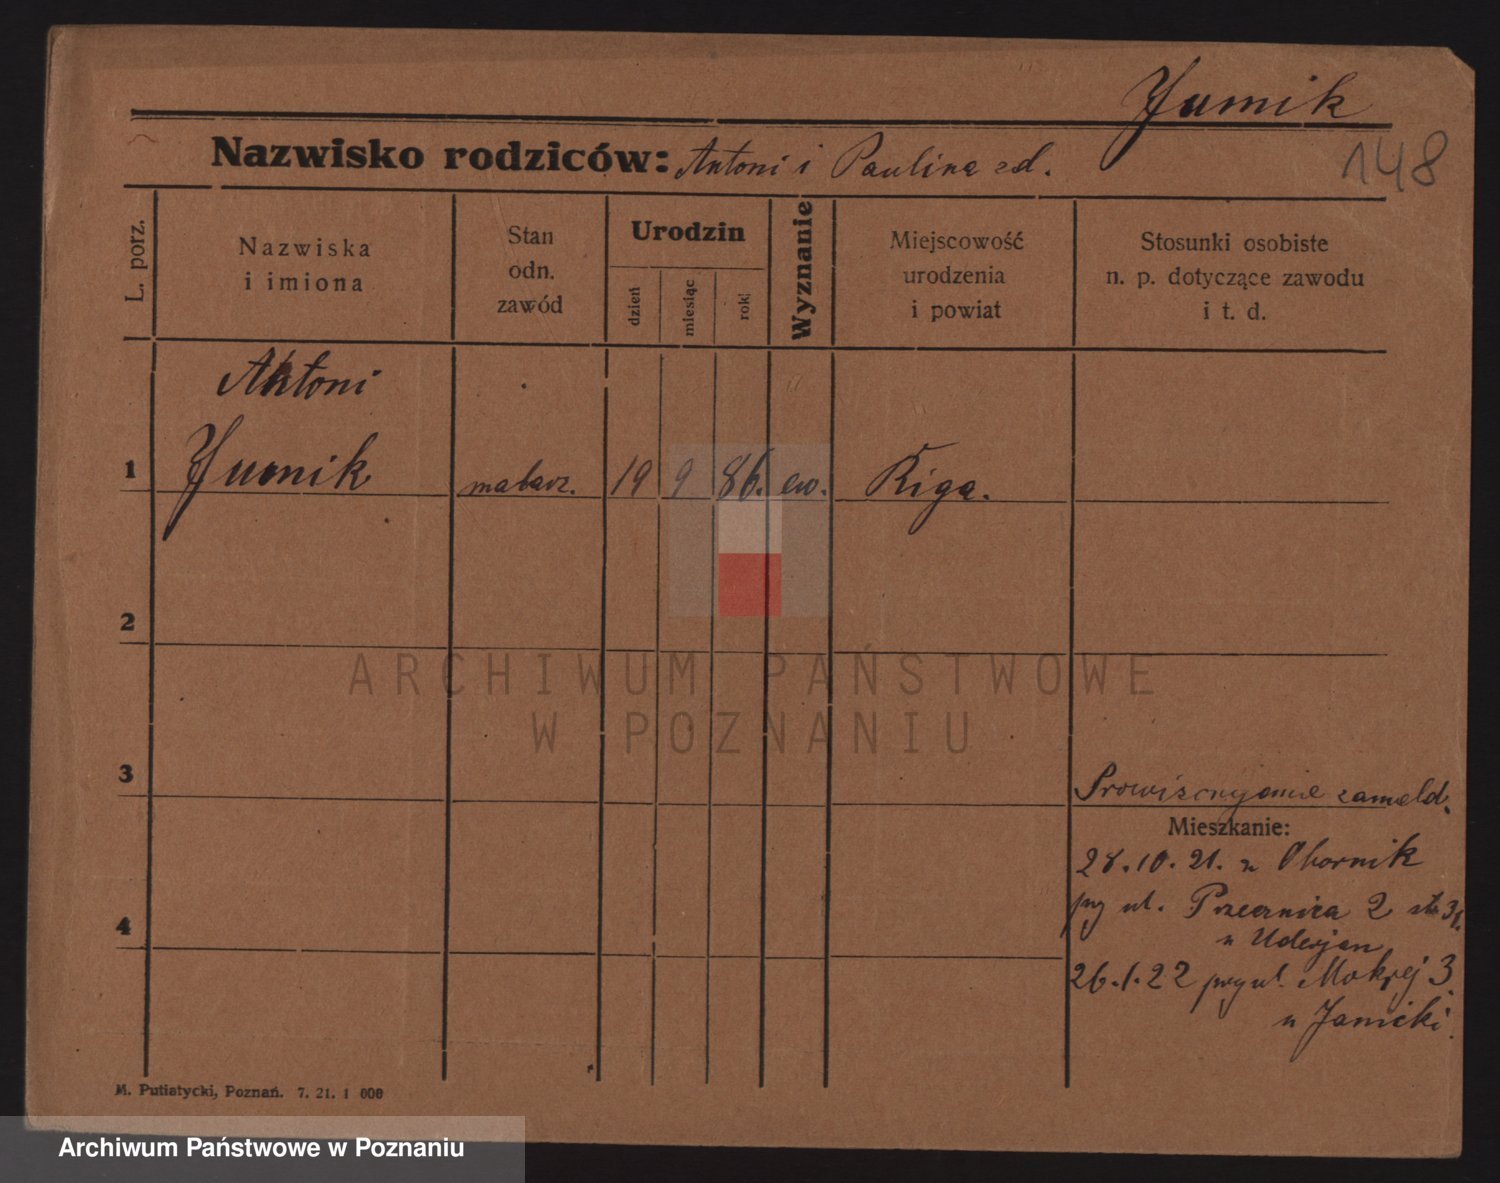 Jumik
148
Nazwisko rodziców: Antoni i Paulina zd.
L. porz.
Nazwiska
i imiona
Stan
odn.
zawód
Urodzin
dzień
miesiąc
rok
Wyznanie
Miejscowość
urodzenia
i powiat
Stosunki osobiste
n. p. dotyczące zawodu
i t. d.
Antoni
1 Jumik malarz. 19 9 86. ew. Riga.
2
3
zameld.
Mieszkanie:
28.10.21. z Obornik
przy ul. 2
4
u
26.1.22 przy ul. Mokrej 3.
u Janicki.
M. Putiatycki, Poznań. 7. 21. 1 000
ARCHIWUM PAŃSTWOWE
W POZNANIU
Archiwum Państwowe w Poznaniu